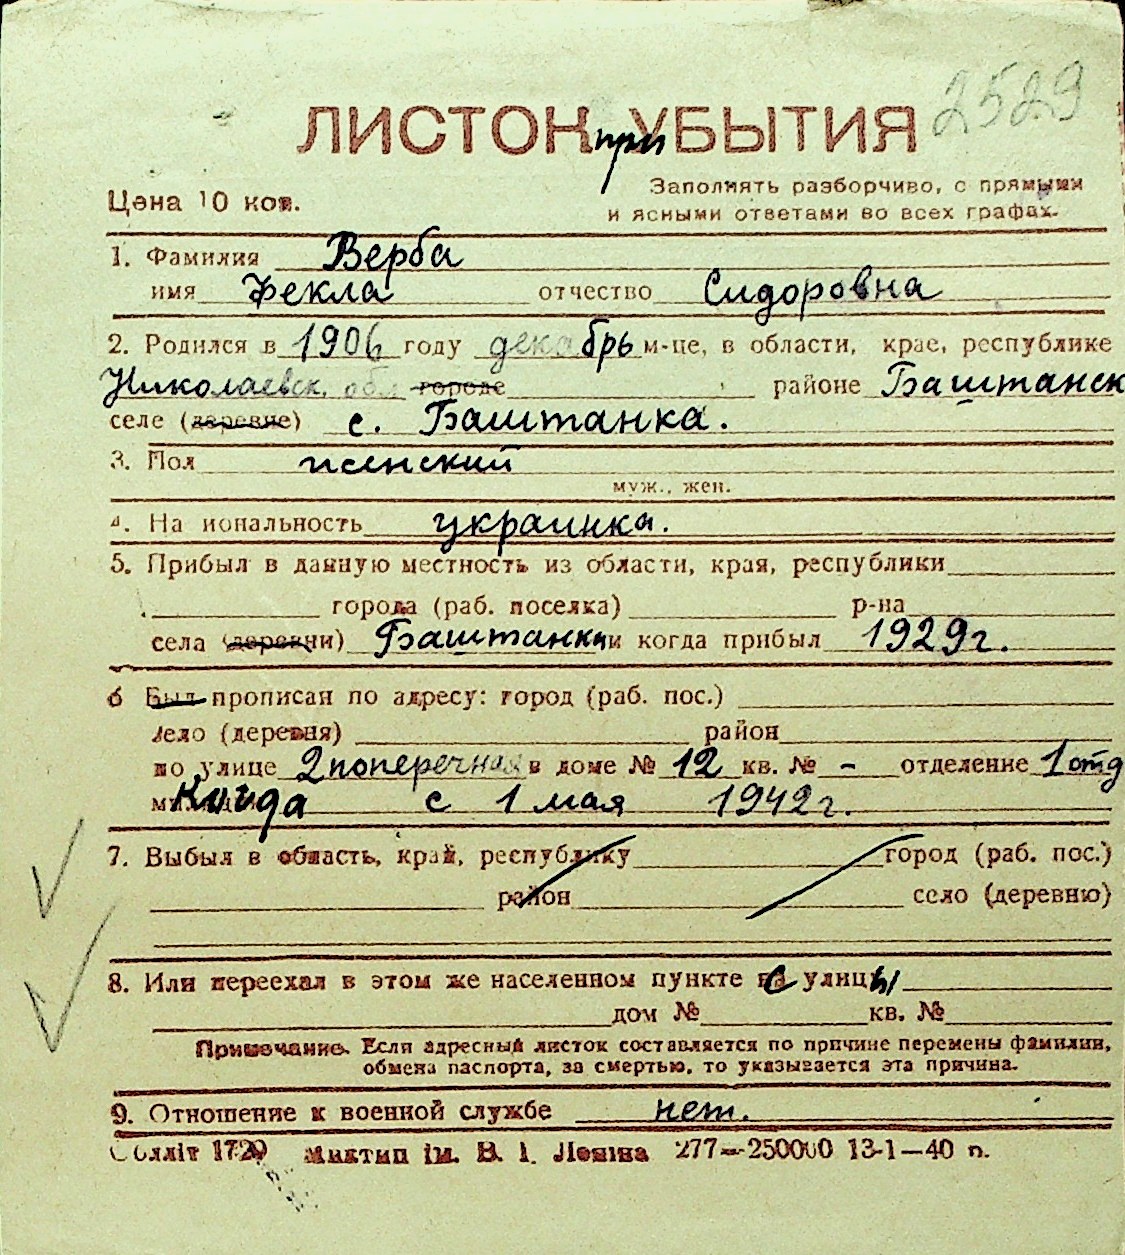 2529
ЛИСТОК при УБЫТИЯ
Цена 10 коп.
Заполнять разборчиво, с прямыми
и ясными ответами во всех графах.
1. Фамилия Верба
имя Фекла отчество Сидоровна
2. Родился в 1906 году декабрь м-це, в области, крае, республике
Николаевск. обл. городе районе Баштанск
селе (деревне) с. Баштанка.
3. Пол женский
муж., жен.
4. На иональность украинка.
5. Прибыл в данную местность из области, края, республики
города (раб. поселка) р-на
села (деревни) Баштанки и когда прибыл 1929г.
6 Был прописан по адресу: город (раб. пос.)
село (деревня) район
по улице 2 поперечная в доме № 12 кв. № - отделение 1 отд
Когда с 1 мая 1942 г.
7. Выбыл в область, край, республику город (раб. пос.)
район село (деревню)
8. Или переехал в этом же населенном пункте с улицы
дом № кв. №
Примечание. Если адресный листок составляется по причине перемены фамилии,
обмена паспорта, за смертью, то указывается эта причина.
9. Отношение к военной службе нет.
Обліт 1729 Миктип ім. В. І. Леніна 277—250000 13-1—40 п.